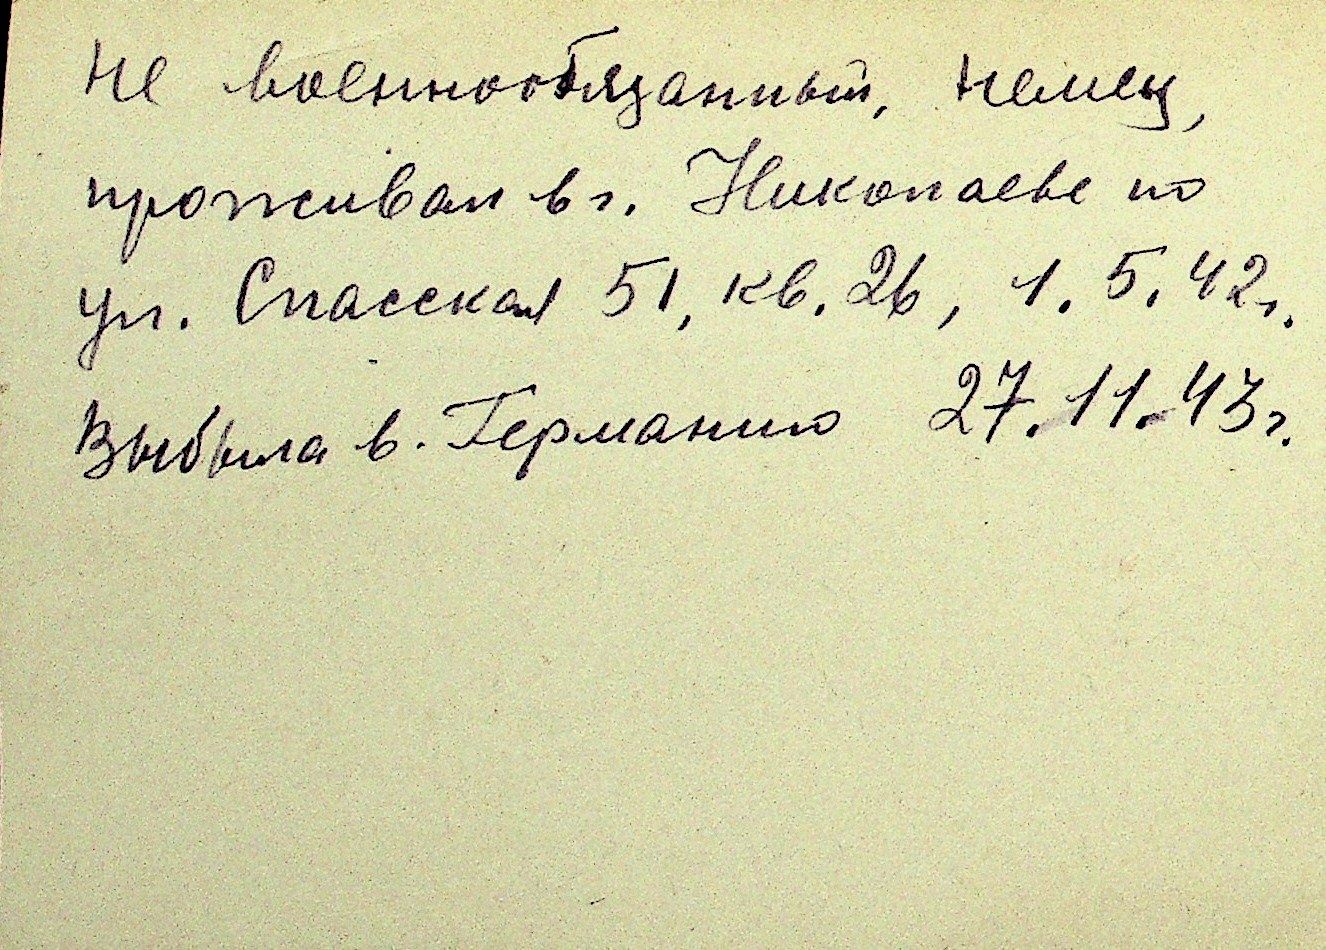 Не военнообязанный, немец,
проживал в г. Николаеве по
ул. Спасская 51, кв. 26, 1. 5. 42г.
Выбыла в. Германию 27. 11. 43г.